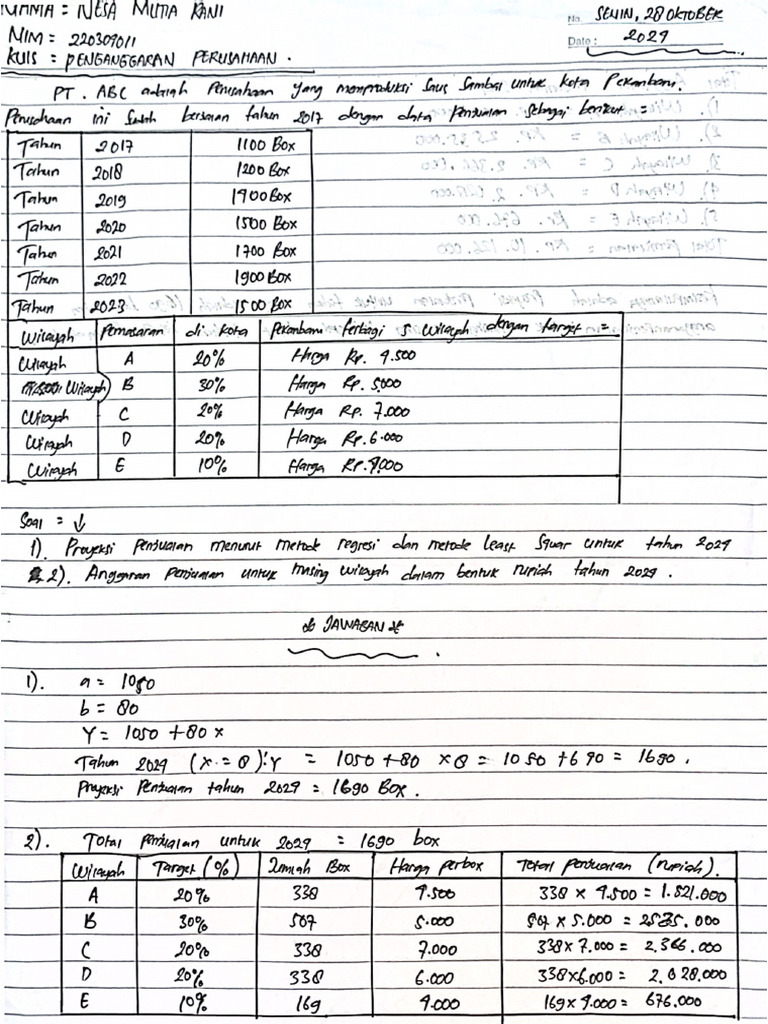 NAMA = NESA MUTIA RANI
No. SENIN, 28 OKTOBER
NIM = 220304011
Date : 2024
KUIS = PENGANGGARAN PERUSAHAAN .
PT. ABC adalah Perusahaan yang memproduksi Saus Sambal untuk kota Pekanbaru.
Perusahaan ini sudah berjalan tahun 2017 dengan data Penjualan sebagai berikut =
Tahun 2017 1100 Box
Tahun 2018 1200 Box
Tahun 2019 1400 Box
Tahun 2020 1500 Box
Tahun 2021 1700 Box
Tahun 2022 1900 Box
Tahun 2023 1500 Box
Wilayah Pemasaran di kota Pekanbaru terbagi 5 wilayah dengan target =
Wilayah A 20% Harga Rp. 4.500
Wilayah B 30% Harga Rp. 5000
Wilayah C 20% Harga Rp. 7.000
Wilayah D 20% Harga Rp. 6.000
Wilayah E 10% Harga Rp. 4.000
Soal = ↓
1). Proyeksi Penjualan menurut metode regresi dan metode Least Squar untuk tahun 2024
2). Anggaran Penjualan untuk masing wilayah dalam bentuk rupiah tahun 2024 .
JAWABAN
1). a = 1050
b = 80
Y = 1050 + 80 x
Tahun 2024 (x = 8) : Y = 1050 + 80 x 8 = 1050 + 640 = 1690 .
Proyeksi Penjualan tahun 2024 = 1690 Box .
2). Total penjualan untuk 2024 = 1690 box
Wilayah Target (%) Jumlah Box Harga perbox Total penjualan (rupiah).
A 20% 338 4.500 338 x 4.500 = 1.521.000
B 30% 507 5.000 507 x 5.000 = 2.535.000
C 20% 338 7.000 338 x 7.000 = 2.366.000
D 20% 338 6.000 338 x 6.000 = 2.028.000
E 10% 169 4.000 169 x 4.000 = 676.000